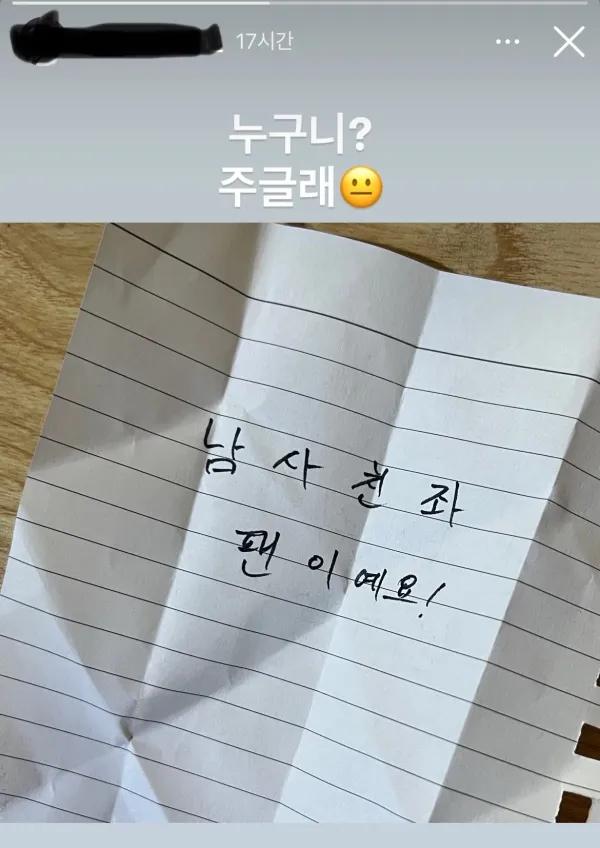 17시간
누구니?
주글래😐
남사친좌
팬이예요!